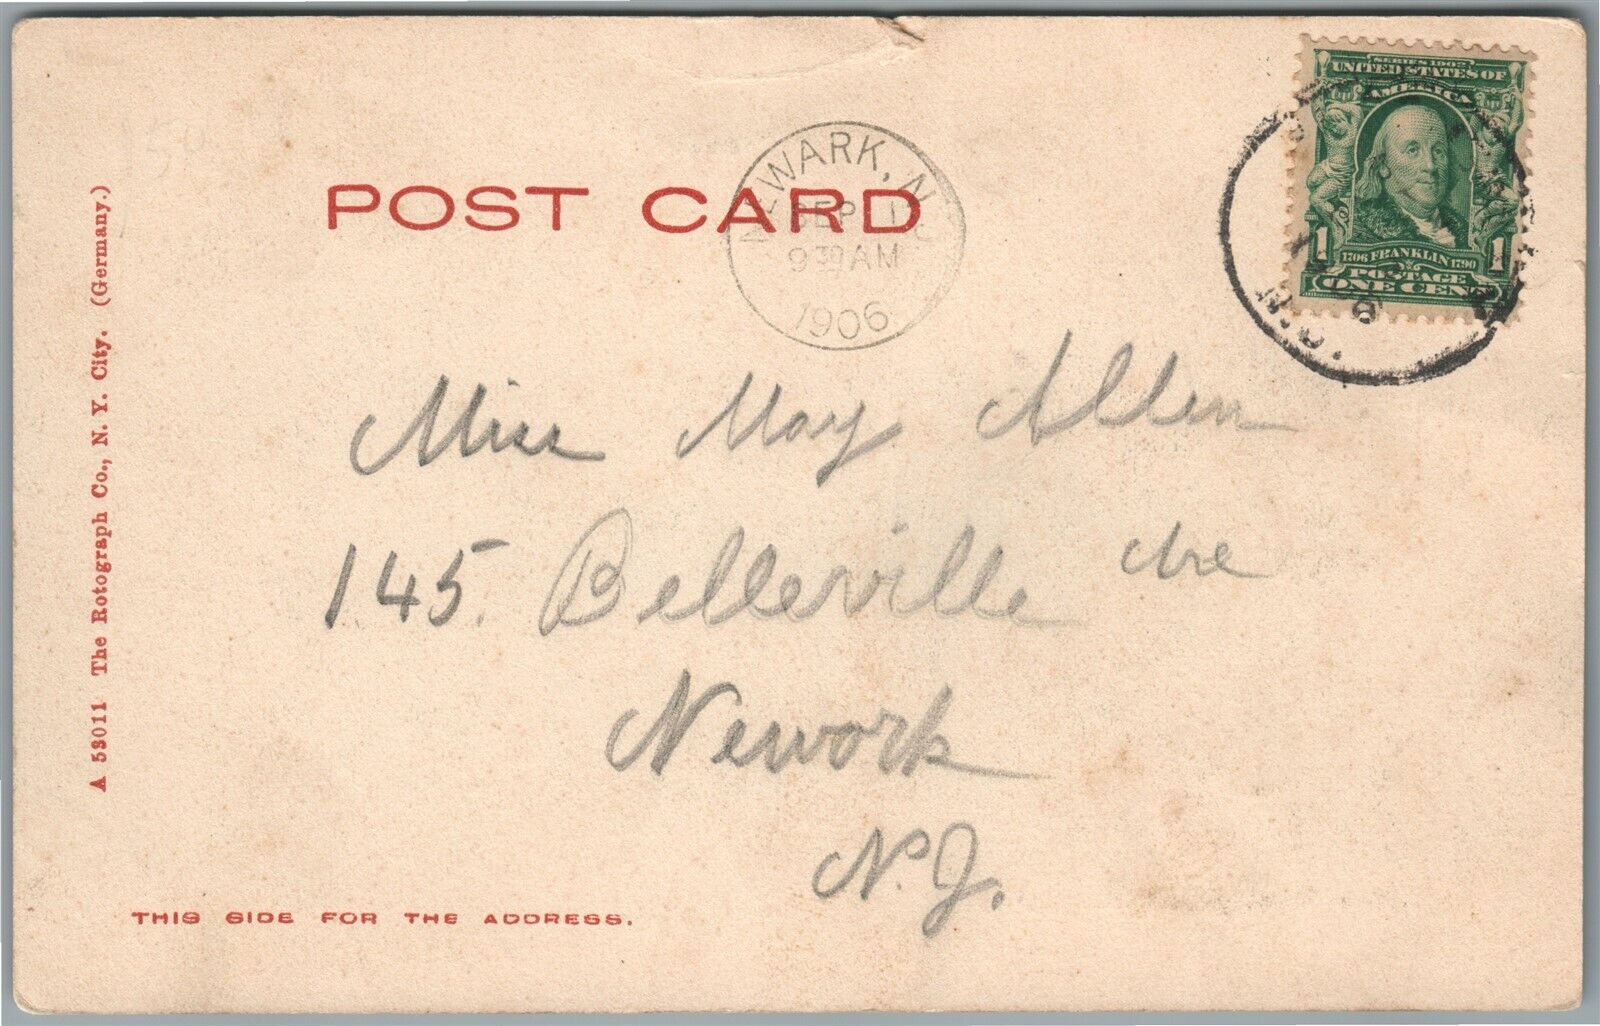 POST CARD
NEWARK, N.J.
SEP 1
9 30 AM
1906
SERIES 1902
UNITED STATES OF
AMERICA
1706 FRANKLIN 1790
POSTAGE
1 ONE CENT 1
Miss May Allen
145. Belleville Ave
Newark
N.J.
A 53011 The Rotograph Co., N. Y. City. (Germany.)
THIS SIDE FOR THE ADDRESS.